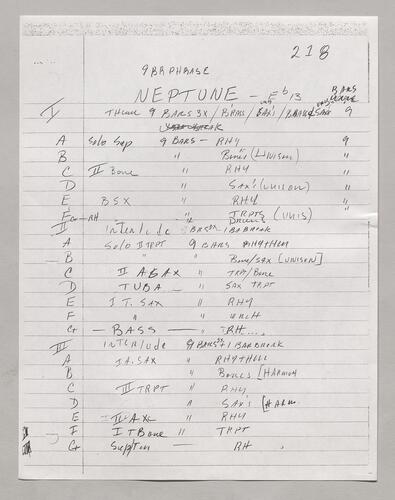 218
9 BR PHRASE
NEPTUNE - Eb13
BARS
I THEME 9 BARS 3X / BRASS / SAX'S / BRASS & SAX 9
A Solo Sop 9 BARS - RHY 9
B " Bones (Unison) "
C II Bone " RHY "
D " SAX'S (UNISON) "
E BSX " RHY "
F TRPTS (UNIS) "
G - RH DRUMS
II INTERLUDE 9 BRS 3X 1 BAR BREAK
A Solo I TRPT 9 BARS RHYTHM
B " " Bone/SAX [UNISON]
C II A SAX " TRPT/Bone
D TUBA " SAX TRPT
E I T. SAX " RHY
F " "
G - BASS - RH...
III INTERLUDE 9 BARS 3X 1 BAR BREAK
A I A. SAX " RHYTHM
B " Bones [HARMON
C III TRPT " RHY
D " SAX'S [HARM.
E II AX " RHY
F I TBone " TRPT
G Sop/Ten - RH "